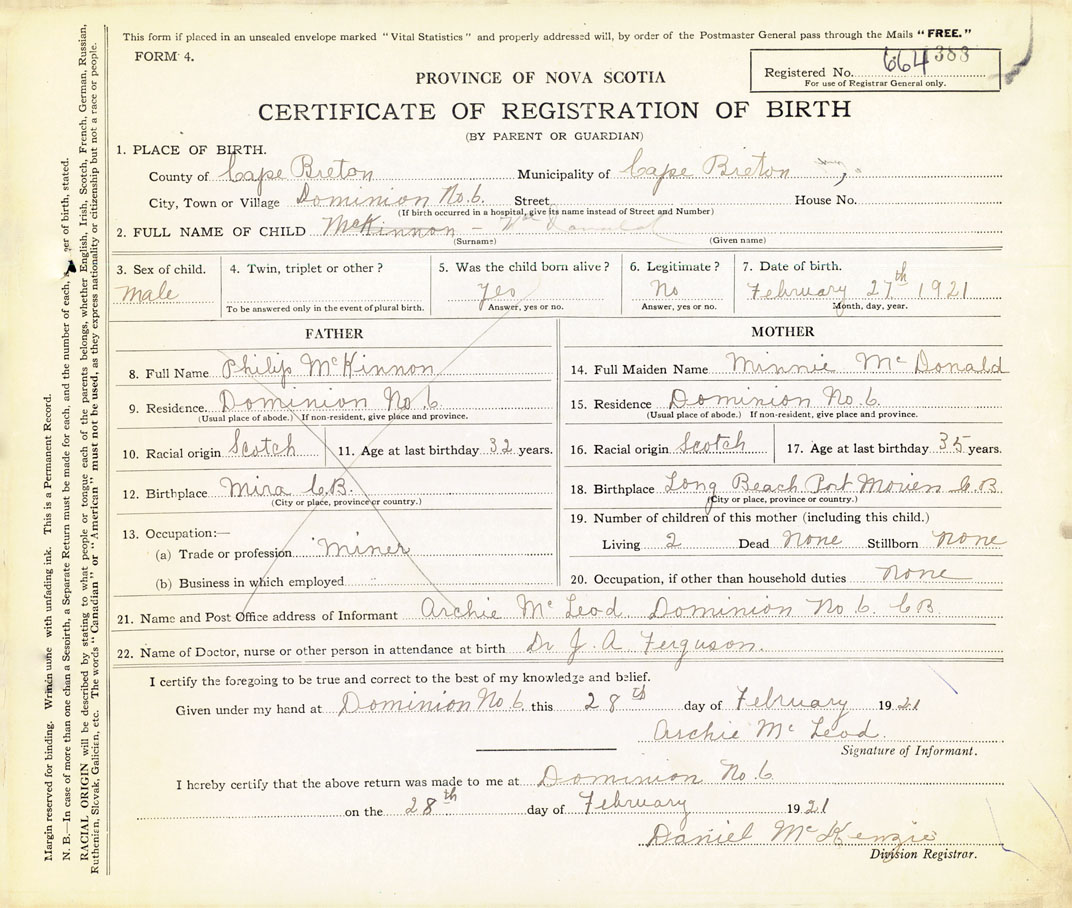 This form if placed in an unsealed envelope marked "Vital Statistics" and properly addressed will, by order of the Postmaster General pass through the Mails "FREE."
FORM 4.
Registered No. 664383
For use of Registrar General only.
PROVINCE OF NOVA SCOTIA
CERTIFICATE OF REGISTRATION OF BIRTH
(BY PARENT OR GUARDIAN)
1. PLACE OF BIRTH.
County of Cape Breton Municipality of Cape Breton
City, Town or Village Dominion No. 6. Street House No.
(If birth occurred in a hospital, give its name instead of Street and Number)
2. FULL NAME OF CHILD McKinnon - McDonald
(Surname) (Given name)
3. Sex of child. Male
4. Twin, triplet or other?
To be answered only in the event of plural birth.
5. Was the child born alive? Yes
Answer, yes or no.
6. Legitimate? No
Answer, yes or no.
7. Date of birth. February 27th 1921
Month, day, year.
FATHER
8. Full Name Philip McKinnon
9. Residence. Dominion No. 6.
(Usual place of abode.) If non-resident, give place and province.
10. Racial origin Scotch 11. Age at last birthday 32 years.
12. Birthplace Mira C.B.
(City or place, province or country.)
13. Occupation:—
(a) Trade or profession Miner
(b) Business in which employed
MOTHER
14. Full Maiden Name Minnie McDonald
15. Residence Dominion No. 6.
(Usual place of abode.) If non-resident, give place and province.
16. Racial origin Scotch 17. Age at last birthday 35 years.
18. Birthplace Long Beach Port Morien C.B
(City or place, province or country.)
19. Number of children of this mother (including this child.)
Living 2 Dead None Stillborn None
20. Occupation, if other than household duties none
21. Name and Post Office address of Informant Archie McLeod Dominion No. 6. C.B.
22. Name of Doctor, nurse or other person in attendance at birth Dr J. A Ferguson.
I certify the foregoing to be true and correct to the best of my knowledge and belief.
Given under my hand at Dominion No 6 this 28th day of February 1921
Archie McLeod.
Signature of Informant.
I hereby certify that the above return was made to me at Dominion No. 6
on the 28th day of February 1921
Daniel McKenzie
Division Registrar.
Margin reserved for binding. with unfading ink. This is a Permanent Record.
N. B.—In case of more than one child a Separate Return must be made for each, and the number of each, in order of birth, stated.
RACIAL ORIGIN will be described by stating to what people or tongue each of the parents belongs, whether English, Irish, Scotch, French, German, Russian,
Ruthenian, Slovak, Galician, etc. The words "Canadian" or "American" must not be used, as they express nationality or citizenship but not a race or people.